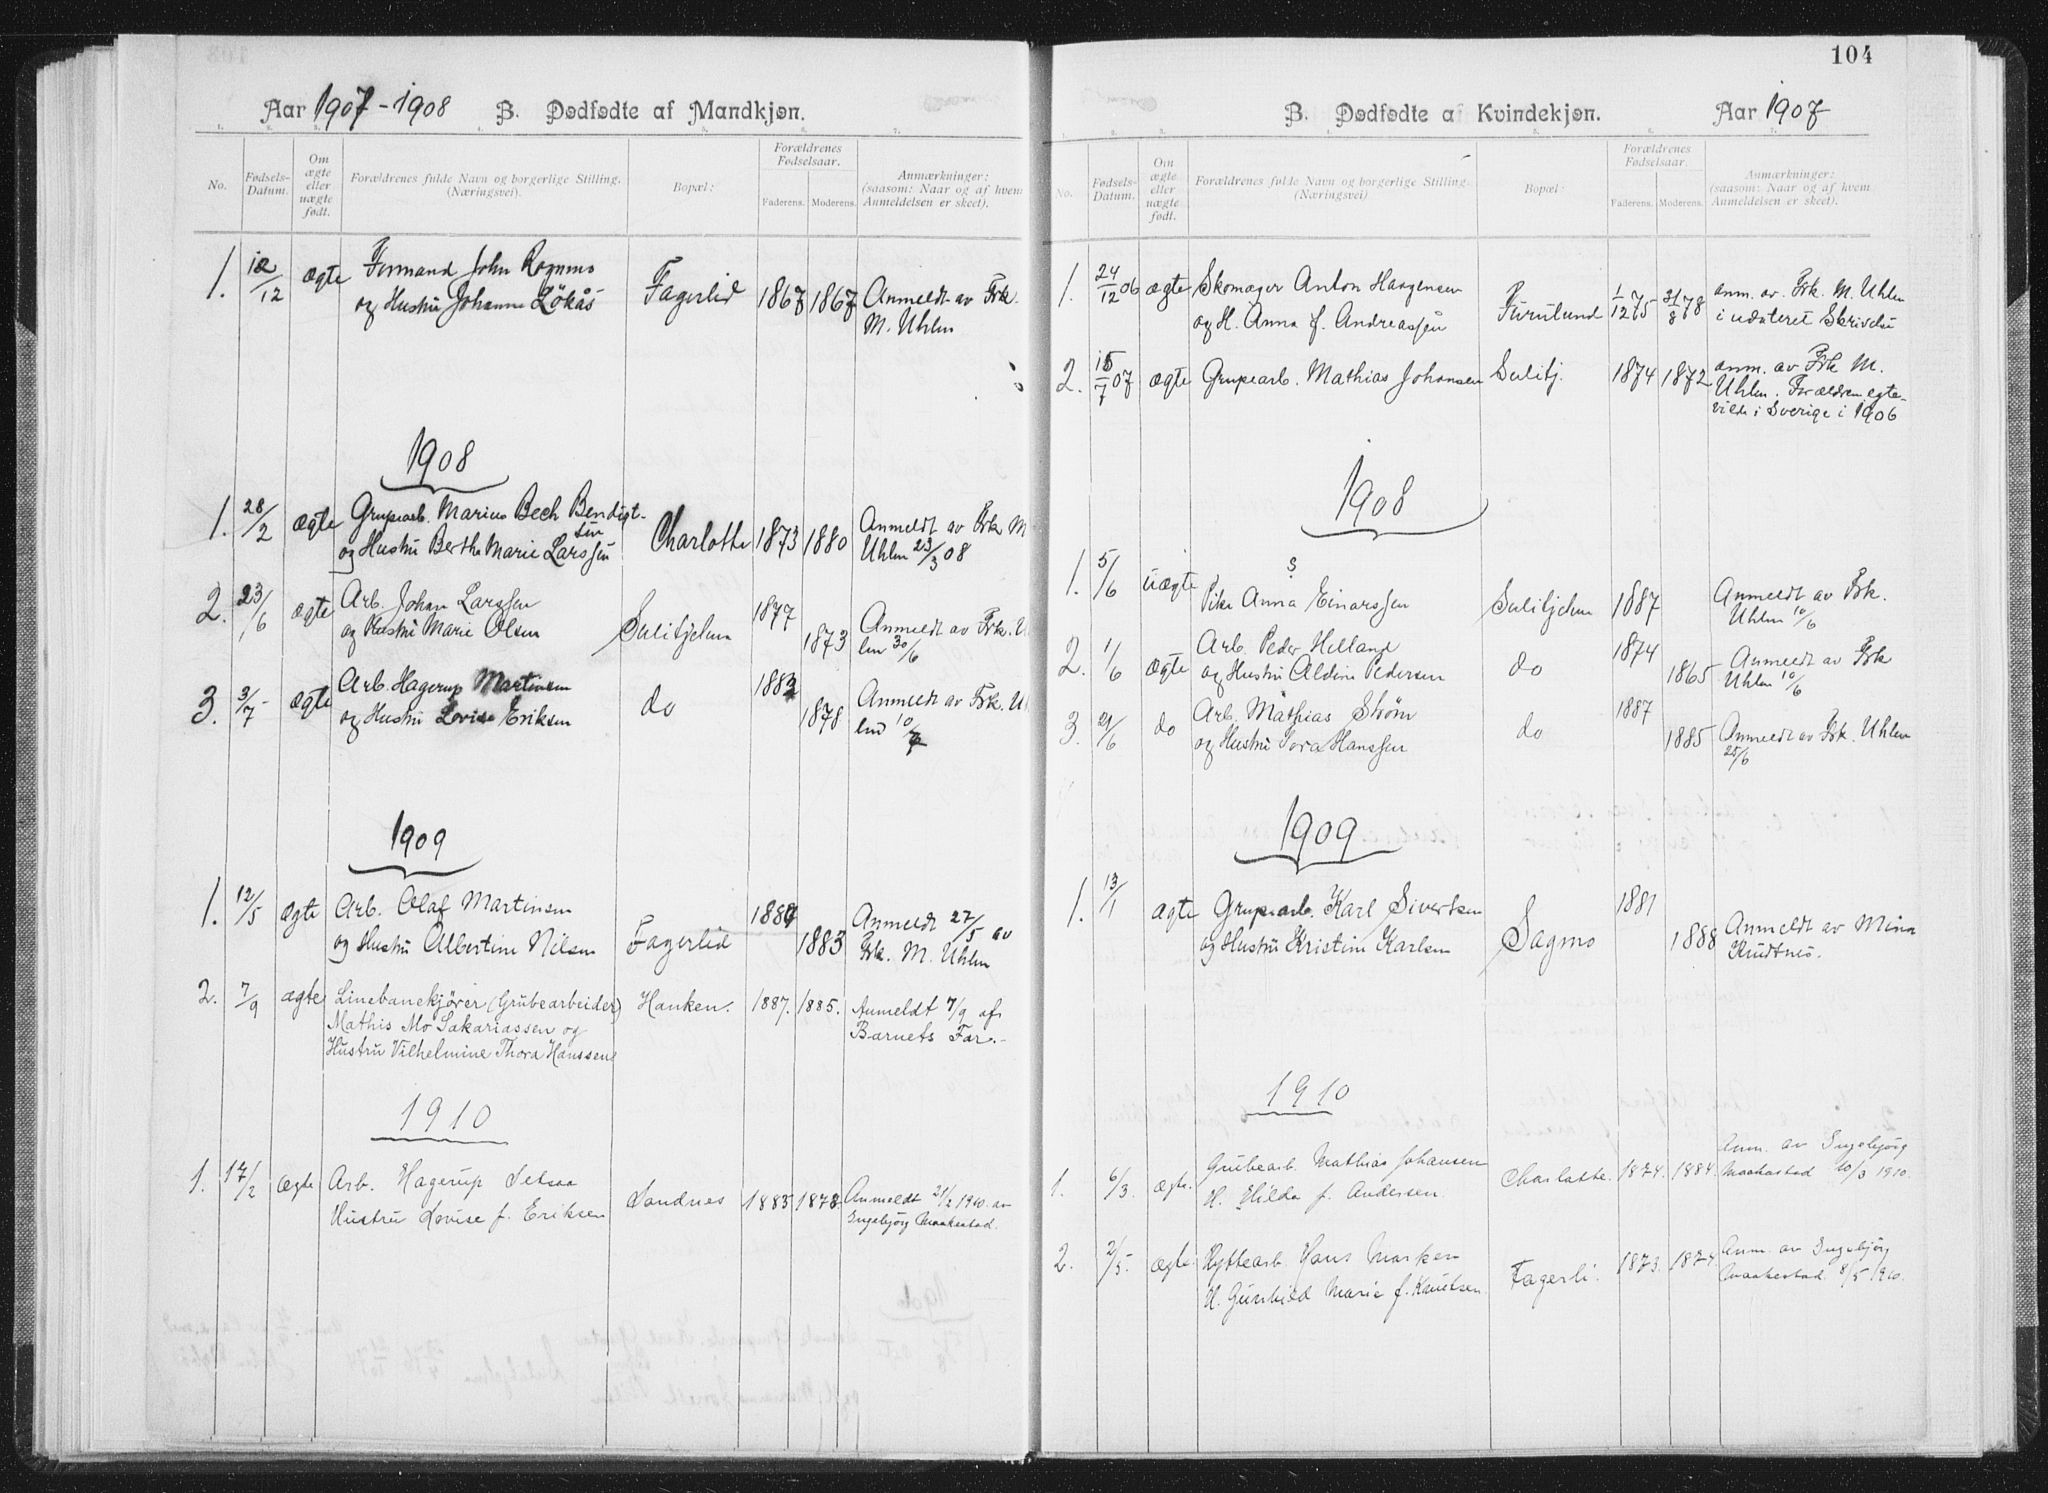 Aar 1907-1908 B. Dødfødte af Mandkjøn.
No.
Fødsels-Datum.
Om ægte eller uægte født.
Forældrenes fulde Navn og borgerlige Stilling. (Næringsvei).
Bopæl:
Forældrenes Fødselsaar.
Faderens. Moderens.
Anmærkninger: (saasom: Naar og af hvem Anmeldelsen er skeet).
1. 12/12 ægte Formand John Rognmo Fagerlid 1867 1867 Anmeldt av Frk.
og Hustru Johanna Løkås M. Uhlen
1908
1. 28/2 ægte Grupearb. Marius Bech Bendigt- Charlotte 1873 1880 Anmeldt av Frk M
sen
og Hustru Berthe Marie Larssen Uhlen 23/3 08
2. 23/6 ægte Arb. Johan Larssen Sulitjelma 1877
og Hustru Marie Olsen 1873 Anmeldt av Frk. U
len 30/6
3. 3/7 ægte Arb. Hagerup Martinsen do 1882
og Hustru Lovise Eriksen 1878 Anmeldt av Frk. U
len 10/7
1909
1. 12/5 ægte Arb. Olaf Martinsen Fagerlid 1880
og Hustru Albertine Nilsen 1883 Anmeldt 27/5 av
Frk. M. Uhlen
2. 7/9 ægte Linebanekjører (Grubearbeider) Hanken. 1887. 1885. Anmeldt 7/9 af
Mathis Mo Sakariassen og Barnets Far.-
Hustru Vilhelmine Thora Hanssen
1910
1. 17/2 ægte Arb. Hagerup Setsaa Sandnes 1883 1878 Anmeldt 21/2 1910 av
Hustru Lovise f. Eriksen Ingebjørg Maakestad.
104
B. Dødfødte af Kvindekjøn. Aar 1907
No.
Fødsels-Datum.
Om ægte eller uægte født.
Forældrenes fulde Navn og borgerlige Stilling. (Næringsvei)
Bopæl:
Forældrenes Fødselsaar.
Faderens. Moderens.
Anmærkninger: (saasom: Naar og af hvem Anmeldelsen er skeet).
1. 24/12 06 ægte Skomager Anton Haagensen Furulund 1/12 75 31/8 78 anm. av. Frk. M. Uhlen
og H. Anna f. Andreassen i udateret Skrivelse
2. 15/7 07 ægte Grupearb. Mathias Johansen Sulitj. 1874 1872 anm. av Frk M.
Uhlen. Forældrene egte-
vilde i Sverige i 1906
1908
1. 5/6 uægte ?
Pike Anna Einarssen Sulitjelma 1887 Anmeldt av Frk.
Uhlen 10/6
2. 1/6 ægte Arb. Peder Helland do 1874
og Hustru Aldine Pedersen 1865 Anmeldt av Frk
Uhlen 10/6
3. 21/6 do Arb. Mathias Strøm do 1887
og Hustru Tora Hanssen 1885 Anmeldt av Frk. Uhlen
25/6
1909
1. 13/1 ægte Grupearb. Karl Sivertsen Sagmo 1881
og Hustru Kristine Karlsen 1888 Anmeldt av Mina
Krudtnes.
1910
1. 6/3. ægte. Grubearb. Mathias Johansen Charlotte. 1874. 1884. Anm. av Ingebjørg
H. Hilda f. Andersen. Maakestad 10/3 1910.
2. 2/5. ægte. Hyttearb. Hans Marken Fagerli. 1873. 1874. Anm. av Ingebjørg
H. Gunhild Marie f. Knutsen. Maakestad. 8/5 1910.